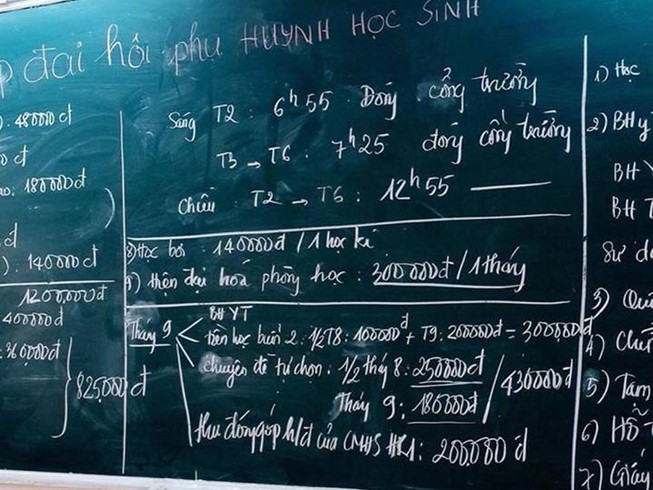 đại hội phụ HUYNH HỌC SINH
480000 đ
đ
180000đ
đ
): 140000đ
1200.000đ
400000đ
: 360.000đ
825.000 đ
Sáng T2 : 6h55 Đóng cổng trường
T3 → T6 : 7h25 đóng cổng trường
Chiều : T2 → T6 : 12h55 ———
8) Học bơi : 140000đ / 1 học kì
9) hiện đại hoá phòng học : 300.000đ / 1 tháng
Tháng 9
BHYT
tiền học buổi 2 : 1/2 T8 : 100000đ + T9 : 200000đ = 300.000đ
chuyên đề tự chọn : 1/2 thg 8 : 250000đ
Tháng 9 : 180000đ / 430000đ
thu đóng góp h/đ của CMHS HK1 : 200.000 đ
1) Học
2) BH y
BH Y
BH T
Sử d
3)
4)
5)
6) Hỗ
7) Giấy